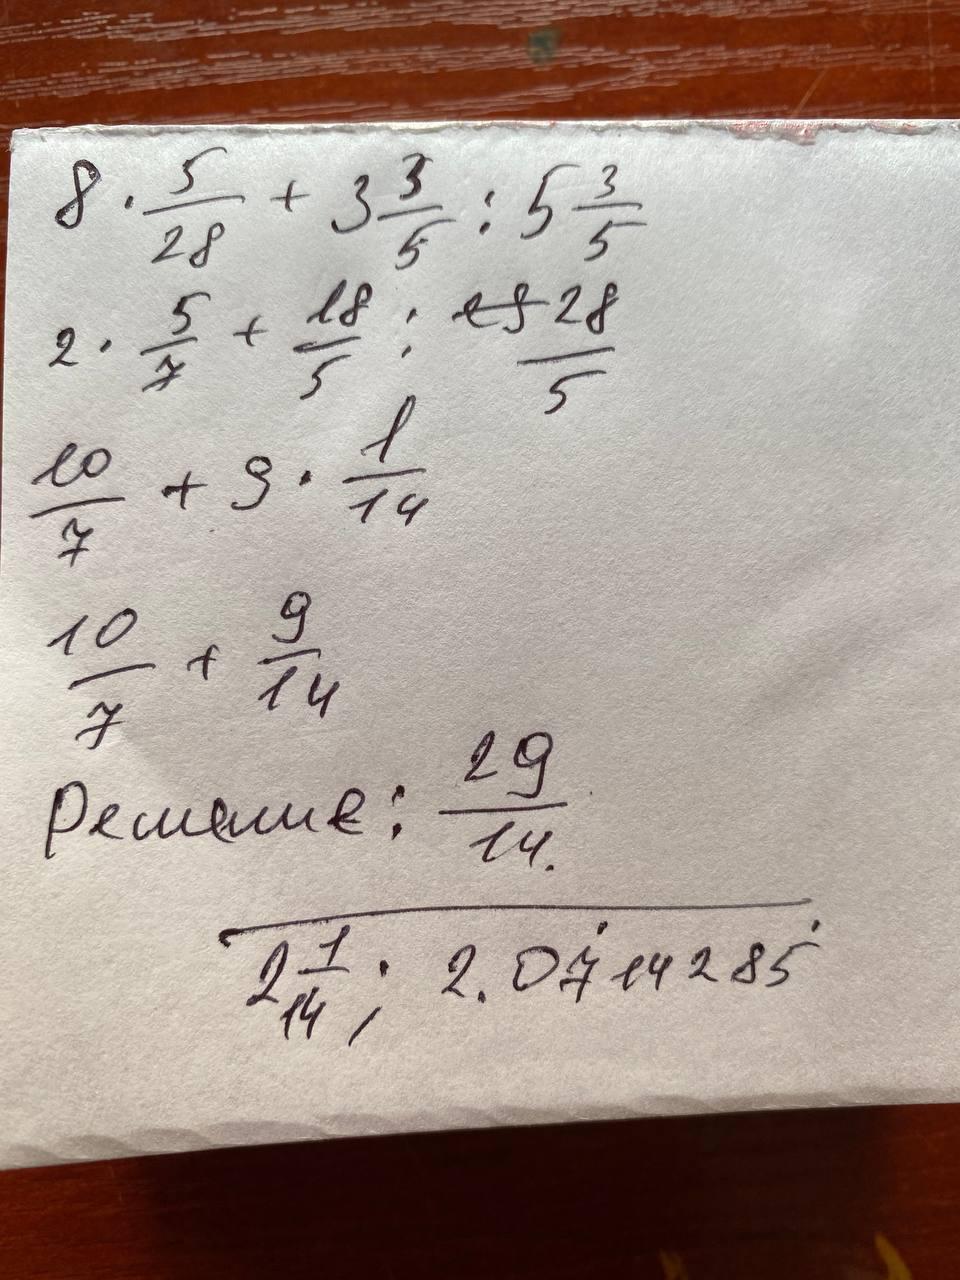 8 · 5/28 + 3 3/5 : 5 3/5
2 · 5/7 + 18/5 : 28/5
10/7 + 9 · 1/14
10/7 + 9/14
Решение: 29/14.
2 1/14; 2.07̇14285̇